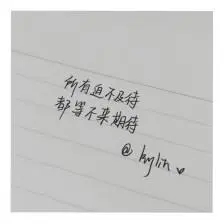 所有迫不及待
都等不来期待
@ kylin ♥